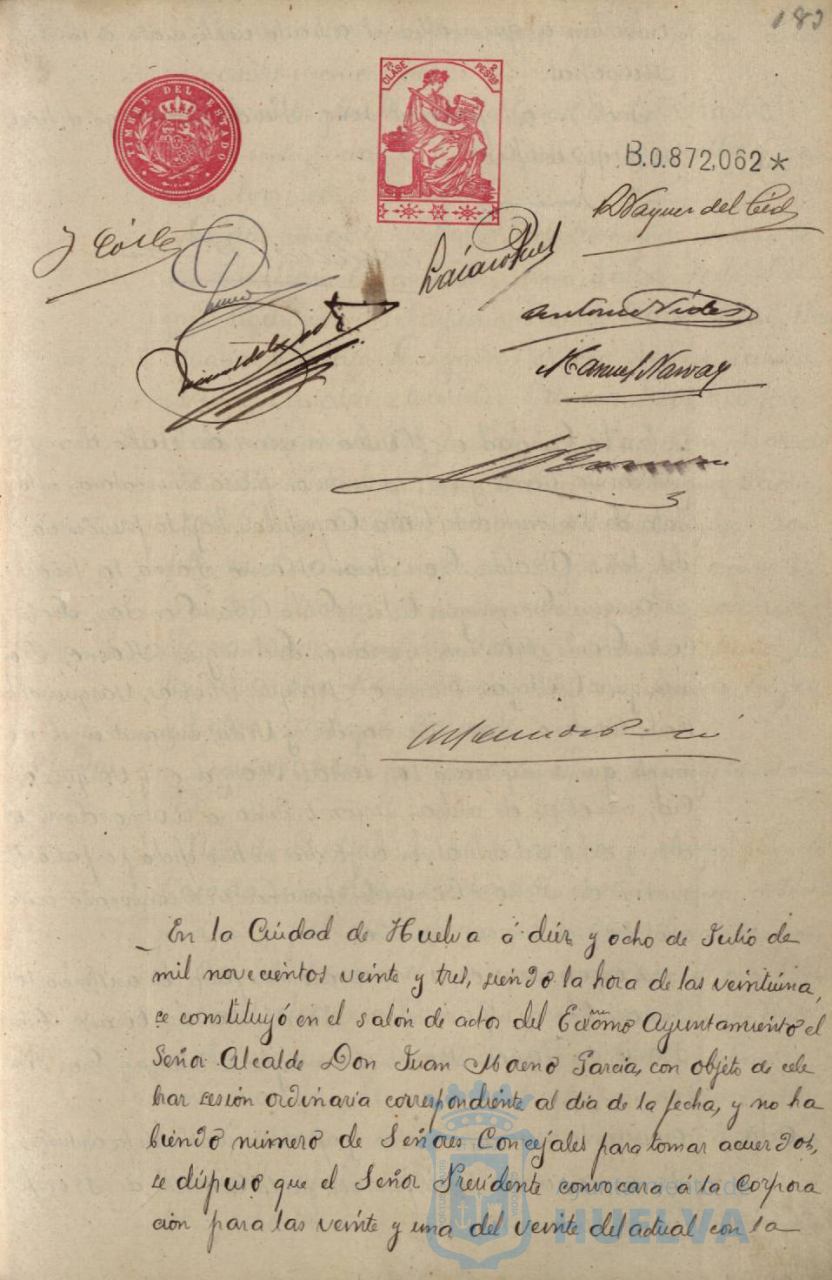 182
TIMBRE DEL ESTADO
7ª CLASE
2 PESETAS
B.0.872,062*
R Vazquez del Cid
J Cóst
Antonio Vides
Manuel Narvaez
En la Ciudad de Huelva á diez y ocho de Julio de
mil novecientos veinte y tres, siendo la hora de las veintiúna,
se constituyó en el salón de actos del Excmo Ayuntamiento el
Señor Alcalde Don Juan Moreno García, con objeto de cele
brar sesión ordinaria correspondiente al dia de la fecha, y no ha
biendo número de Señores Concejales para tomar acuerdos,
se dispuso que el Señor Presidente convocara á la Corpora
ción para las veinte y una del veinte del actual con la
Ayuntamiento de
HUELVA